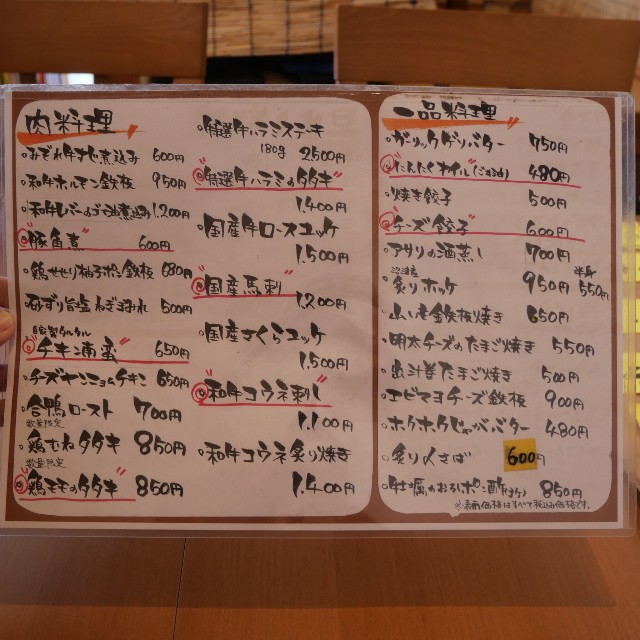 肉料理
みぞれ牛すじ煮込み 600円
和牛ホルモン鉄板 950円
和牛レバーのごま油煮込み 1,200円
"豚角煮" 600円
鶏せせり柚子ポン鉄板 680円
砂ずり旨塩ねぎまみれ 500円
自家製タルタル
"チキン南蛮" 650円
チーズヤンニョムチキン 650円
合鴨ロースト 700円
数量限定
鶏むねタタキ 850円
数量限定
"鶏モモのタタキ" 850円
特選牛ハラミステーキ
180g 2,500円
"特選牛ハラミのタタキ"
1,400円
国産牛ロースユッケ
1,500円
"国産馬刺" 1,200円
国産さくらユッケ
1,500円
"和牛コウネ刺し"
1,100円
和牛コウネ炙り焼き
1,400円
一品料理
ガーリックゲリバター 750円
"にんにくオイル(ごま油)" 480円
焼き餃子 500円
"チーズ餃子" 600円
アサリの酒蒸し 700円
炙りホッケ 950円 半身 550円
山いも鉄板焼き 650円
明太チーズのたまご焼き 550円
出汁巻たまご焼き 500円
エビマヨチーズ鉄板 900円
ホクホクじゃがバター 480円
炙り〆さば 600円
牡蠣のおろしポン酢 850円
※表記価格はすべて税込み価格です。